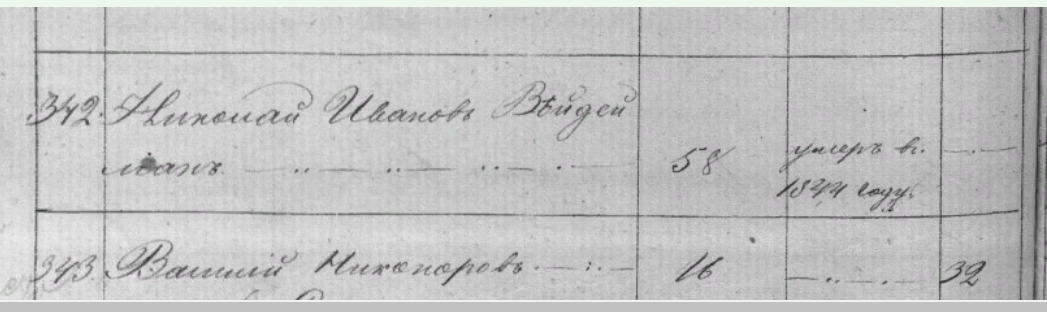 342. Николай Ивановъ Вѣйдей
манъ. 58 умеръ въ.
1844 году.
343. Василій Никаноровъ. 16 32